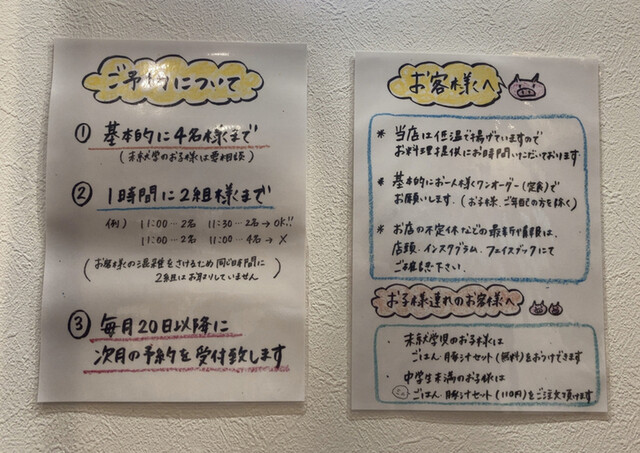 ご予約について
① 基本的に4名様まで
(未就学のお子様は要相談)
② 1時間に2組様まで
例) 11:00…2名 11:30…2名→OK!!
11:00…2名 11:00…4名→×
(お客様の混雑をさけるため同じ時間に
2組はお取りしていません)
③ 毎月20日以降に
次月の予約を受付致します
お客様へ
* 当店は低温で揚げていますので
お料理提供にお時間いただいております
* 基本的にお一人様ワンオーダー(定食)で
お願いします。(お子様、ご年配の方を除く)
* お店の不定休などの最新情報は、
店頭、インスタグラム、フェイスブックにて
ご確認下さい。
お子様連れのお客様へ
・ 未就学児のお子様は
ごはん・豚汁セット(無料)をおつけできます
・ 中学生未満のお子様は
ごはん・豚汁セット(110円)をご注文頂けます